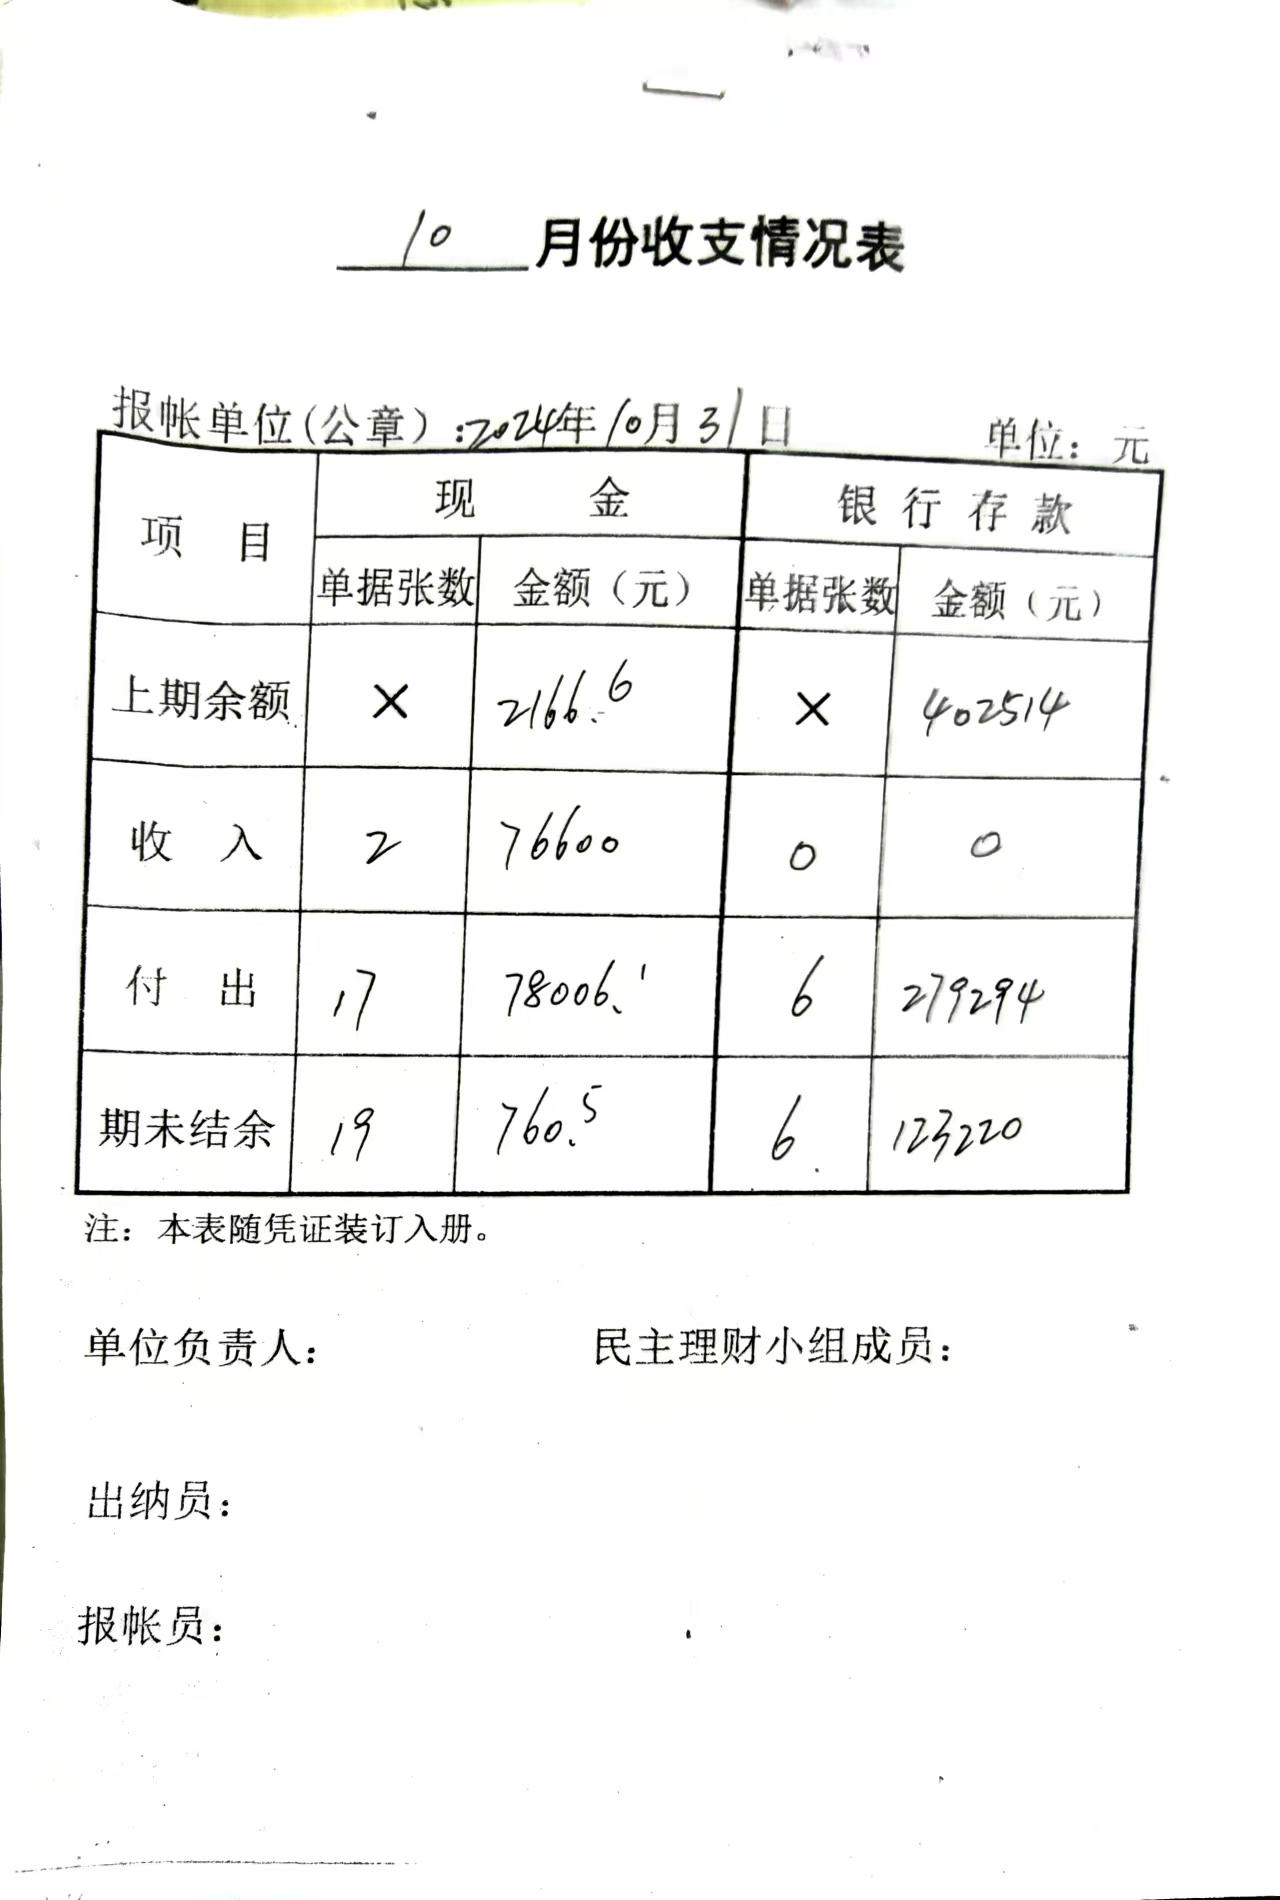 10 月份收支情况表
报帐单位(公章）:2024年10月31日 单位：元
项 目 现 金 银 行 存 款
单据张数 金额（元） 单据张数 金额（元）
上期余额 × 2166.6 × 402514
收 入 2 76600 0 0
付 出 17 78006.1 6 279294
期未结余 19 760.5 6 123220
注：本表随凭证装订入册。
单位负责人： 民主理财小组成员：
出纳员：
报帐员：